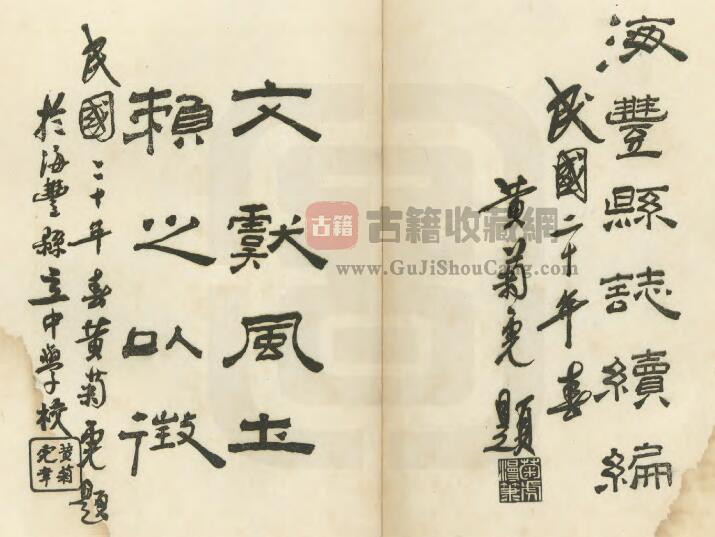 海豐縣誌續編
民國二十年春
黃菊
題
文獻風土
賴之以徵
民國二十年春黃菊
題
於海豐縣立中學校
古籍
古籍收藏網
www.GuJiShouCang.com